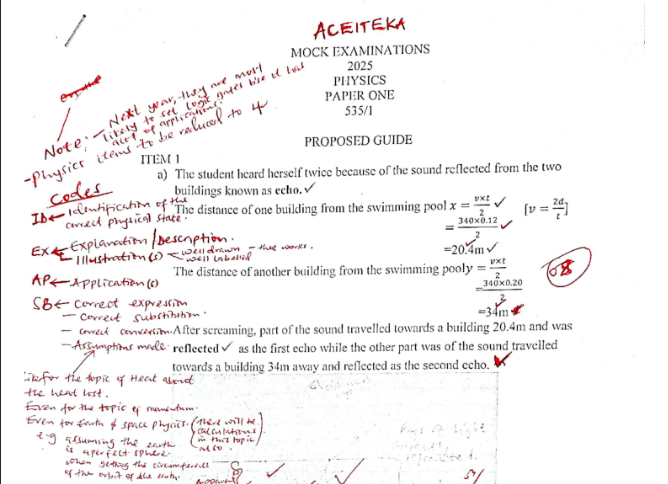 ACEITEKA
MOCK EXAMINATIONS
2025
PHYSICS
PAPER ONE
535/1
PROPOSED GUIDE
Note: - Next year, they are most
likely to set logic gates bse it has
alot of applications.
- Physics items to be reduced to 4
ITEM 1
a) The student heard herself twice because of the sound reflected from the two
buildings known as echo. ✓
The distance of one building from the swimming pool x = v×t/2 ✓ [v = 2d/t]
= 340×0.12/2 ✓
=20.4m ✓
The distance of another building from the swimming pooly = v×t/2
= 340×0.20/2
=34m
08
After screaming, part of the sound travelled towards a building 20.4m and was
reflected ✓ as the first echo while the other part was of the sound travelled
towards a building 34m away and reflected as the second echo.
Codes
ID ← Identification of the
correct physical state.
EX ← Explanation / Description.
Illustration(s) ← well drawn - that works.
well labelled
AP ← Application(s)
SB ← correct expression
- correct substitution.
- correct conversion
- Assumptions made
like for the topic of Heat about
the heat lost.
Even for the topic of momentum.
Even for Earth & space physics. (there will be
calculations
in this topic
also.)
e.g assuming the earth
is a perfect sphere
when getting the circumference
of the orbit of the earth.